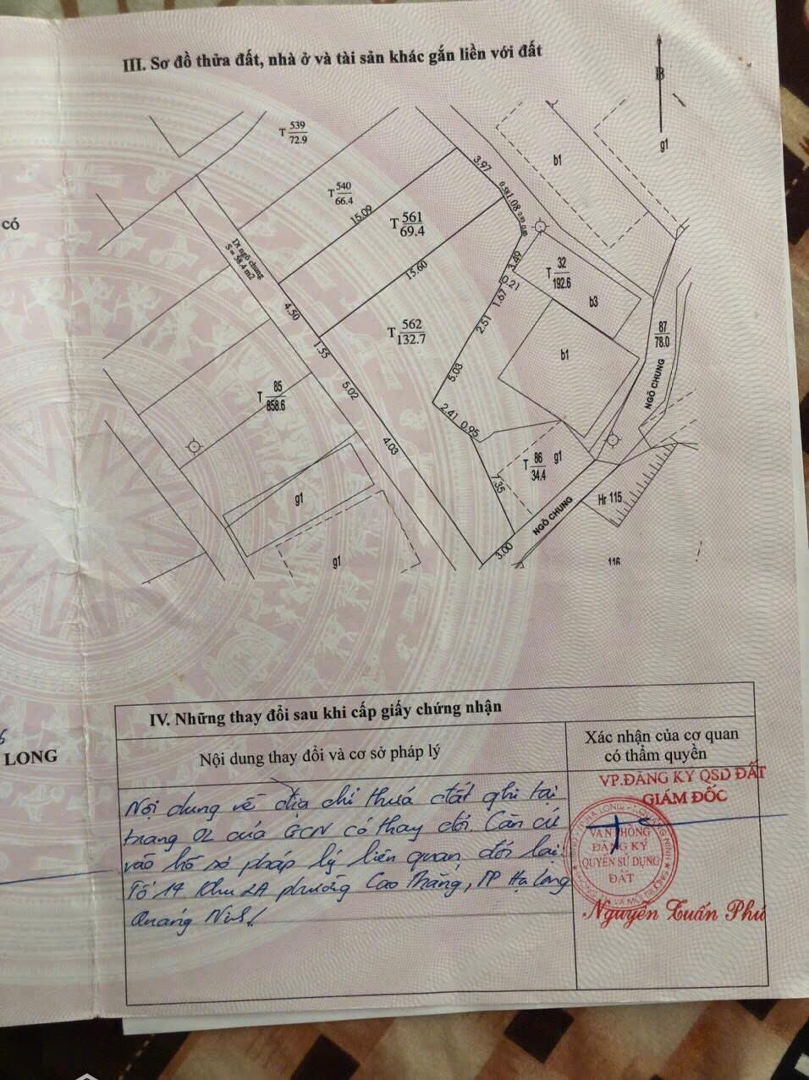 III. Sơ đồ thửa đất, nhà ở và tài sản khác gắn liền với đất
B
T 539
72.9
T 540
66.4
15.09
T 561
69.4
3.97
0.58
1.08
b1
g1
có
Dt ngõ chung
S = 38.4 m2
15.60
3.49
(0.21)
1.67
2.51
T 32
192.6
b3
4.50
1.55
T 562
132.7
b1
87
78.0
NGÕ CHUNG
5.03
5.02
T 85
858.6
2.41
0.95
4.03
T 86
34.4
g1
7.35
g1
Hr 115
NGÕ CHUNG
3.00
g1
116
IV. Những thay đổi sau khi cấp giấy chứng nhận
Nội dung thay đổi và cơ sở pháp lý
Xác nhận của cơ quan
có thẩm quyền
LONG
VP.ĐĂNG KÝ QSD ĐẤT
GIÁM ĐỐC
Nội dung về địa chỉ thửa đất ghi tại
trang 02 của GCN có thay đổi. Căn cứ
vào hồ sơ pháp lý liên quan, đổi lại:
Tổ 14 Khu 2A phường Cao Thắng, TP Hạ Long
Quảng Ninh
VĂN PHÒNG
ĐĂNG KÝ
QUYỀN SỬ DỤNG
ĐẤT
Nguyễn Tuấn Phú